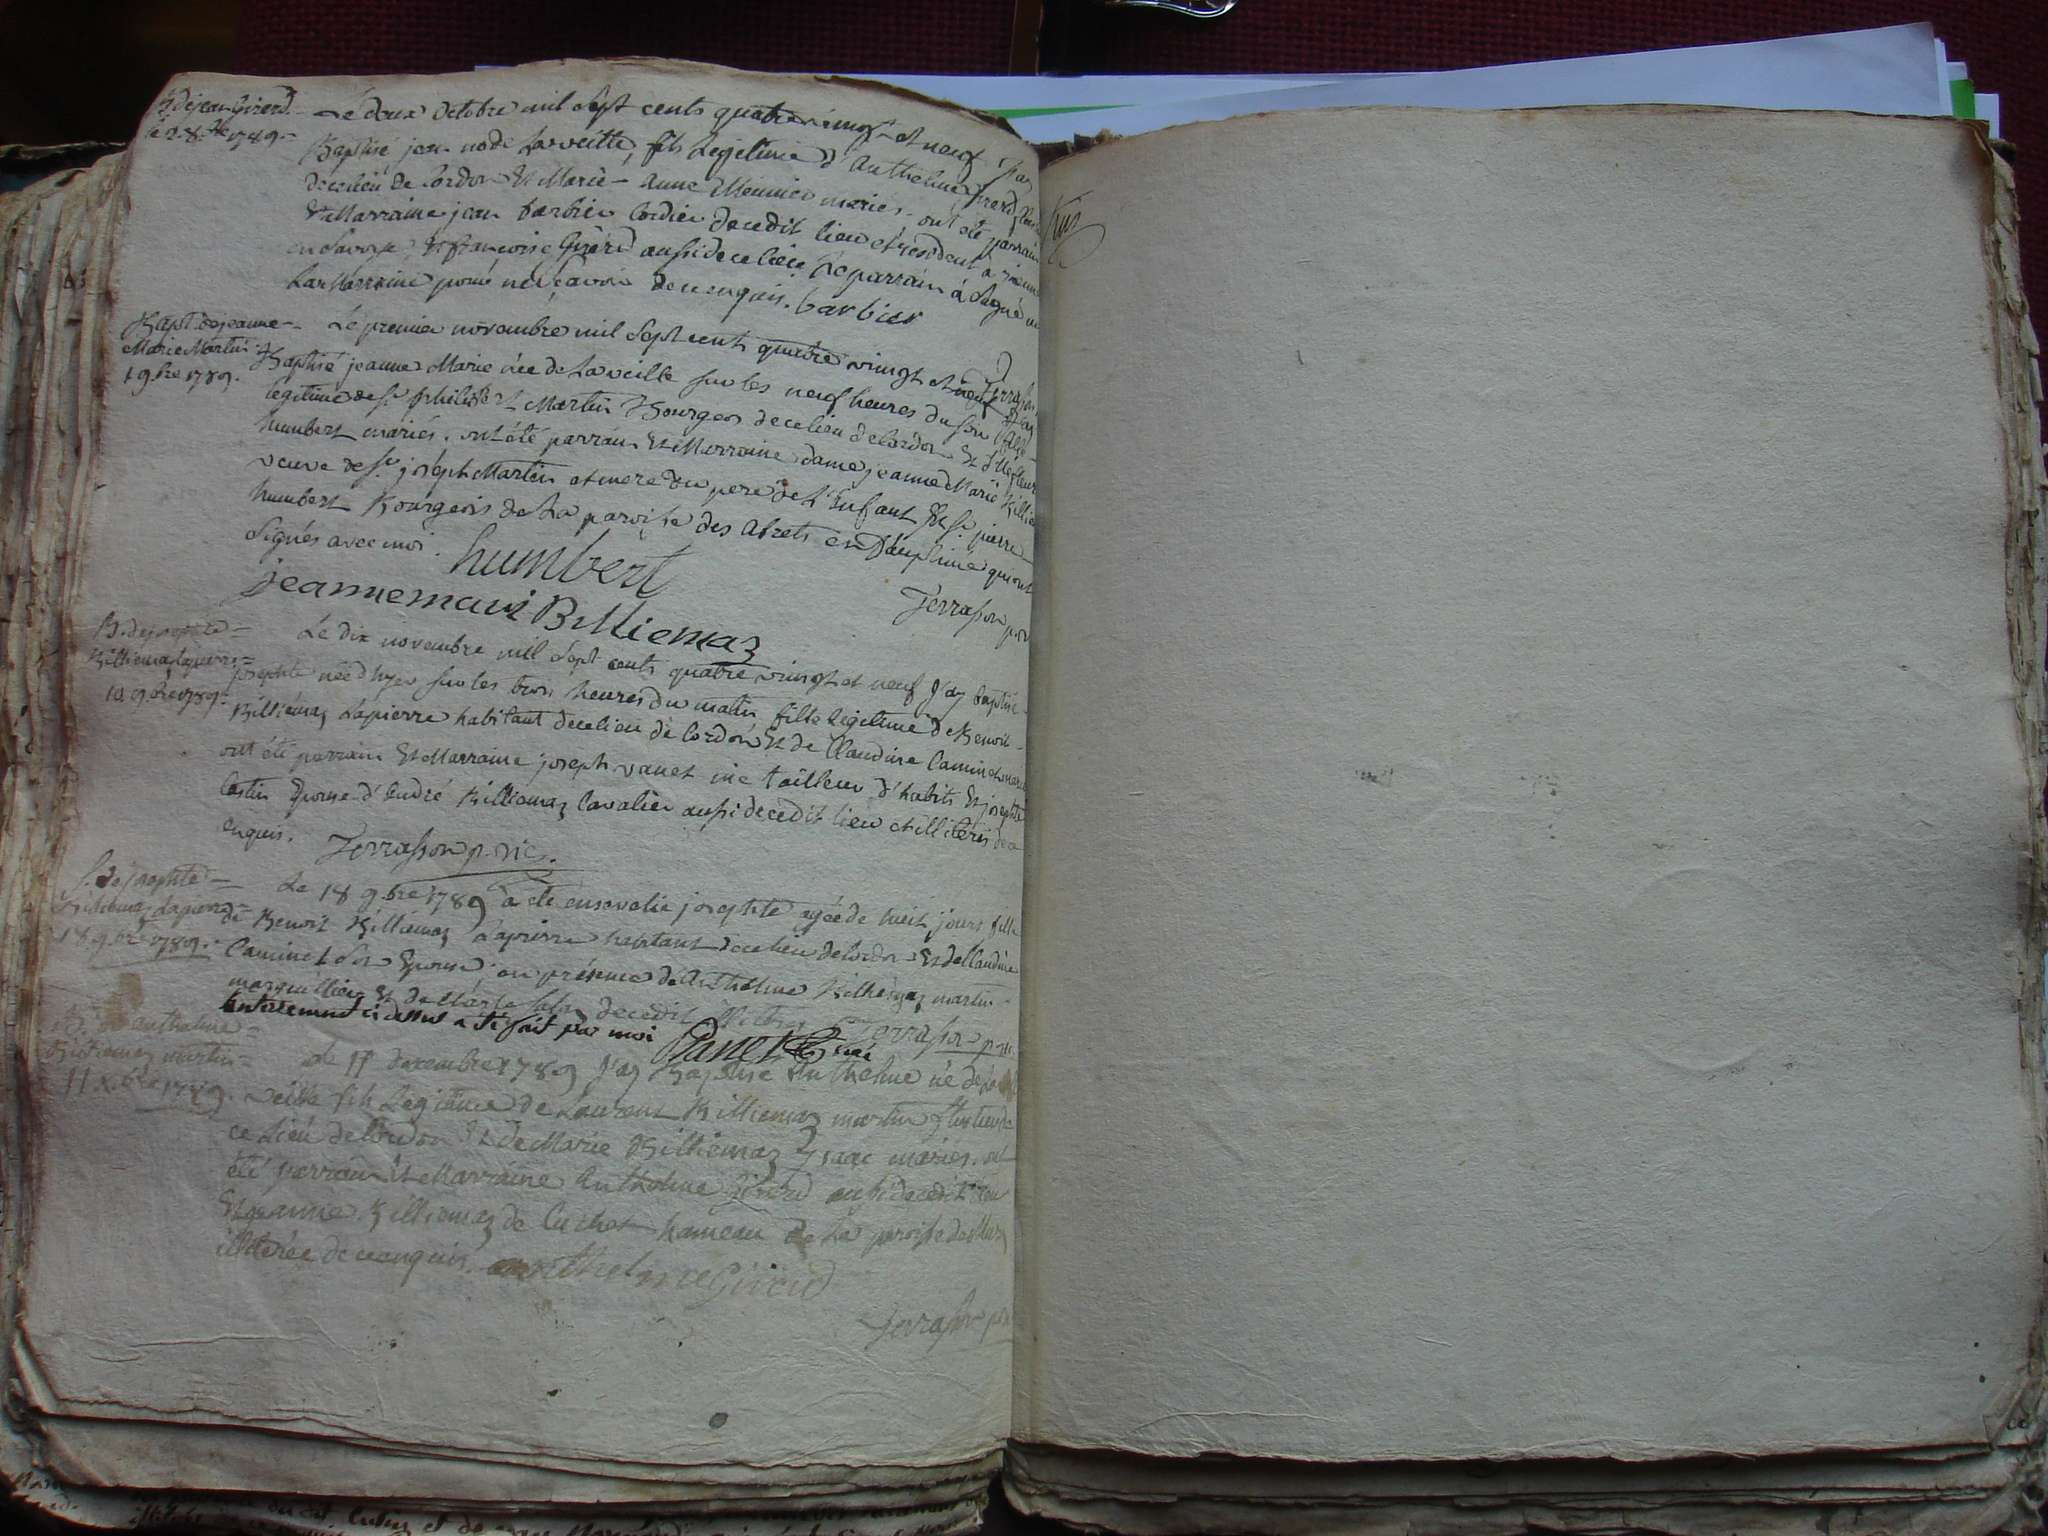 B. de jean Girerd.
le 2. 8.bre 1789.
Le deux octobre mil sept cents quatre vingt et neuf j'ay
Baptisé jean né de La veille, fils Legitime d'Anthelme Girerd
de ce lieu de Cordon Et Marie Anne Meunier mariés. ont eté parrain
Et Marraine jean barbier Cordier de ce dit lieu et resident a
en Savoye, Et françoise Girerd aussi de ce lieu. Le parrain à signé
La Marraine pour ne sçavoir de ce enquis. barbier
Terrasson
Bapt. de jeanne
Marie Martin.
1 9.bre 1789.
Le premier novembre mil sept cents quatre vingt et neuf j'ay
Baptisé jeanne Marie née de La veille sur les neuf heures du soir fille
legitime de sr. philibert Martin Bourgeois de ce lieu de Cordon Et
humbert mariés. ont été parrain Et Marraine dame jeanne Marie Billiemaz
veuve de sr. joseph Martin et mere du pere de L'Enfant Et sr. pierre
humbert Bourgeois de La paroisse des Abrets en Dauphiné qui ont
signés avec moi. humbert
jeanne marie Billiemaz
Terrasson
B. de josephte
Billiemaz Lapierre
10. 9.bre 1789.
Le dix novembre mill sept cents quatre vingt et neuf j'ay baptisé
josephte née d'hyer sur les trois heures du matin fille legitime de Benoit
Billiemaz Lapierre habitant de ce lieu de Cordon Et de Claudine Caminet mariés
ont été parrain Et Marraine joseph vanet tailleur d'habits Et josephte
Castin Epouse d'André Billiemaz Cavalier aussi de ce dit lieu et illiterés de ce
enquis. Terrasson p. vic.
S. de josephte
Billiemaz Lapierre
18 9.bre 1789.
Le 18 9.bre 1789 a eté ensevelie josephte agée de huit jours fille
de Benoit Billiemaz Lapierre habitant de ce lieu de Cordon Et de Claudine
Caminet son Epouse en présence de Anthelme Billiemaz martin
marguillier Et de de ce dit Terrasson
Enterrement ci dessus a été fait par moi Panet
B. de anthelme
Billiemaz martin
11 X.bre 1789.
Le 11 decembre 1789 j'ay Baptisé Anthelme né de La
veille fils Legitime de Laurent Billiemaz martin
ce Lieu de Cordon Et de Marie Billiemaz ysaac mariés. ont
été parrain Et Marraine Anthelme Girerd aussi de ce dit lieu
Et jeanne Billiemaz de Cuchet hameau de La paroisse de
illiterée de ce enquise. anthelme Girerd
Terrasson